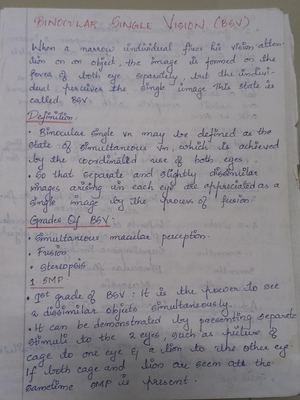 BINOCULAR SINGLE VISION (BSV)
When a narrow individual fixes his vision atten-
tion on on object, the image is formed on the
fovea of both eye separately, but the indivi-
dual perceives the single image this state is
called BSV.
Definition
• Binocular single vn may be defined as the
state of simultaneous vn, which is achieved
by the coordinated use of both eyes.
• So that separate and slightly dissimilar
images arising in each eye are appreciated as a
single image by the process of fusion.
Grades Of BSV:-
• Simultaneous macular perception.
• Fusion
• Stereopsis
1. SMP
• 1st grade of BSV: It is the power to see
2 dissimilar objects simultaneously.
• It can be demonstrated by presenting separate
stimuli to the 2 eyes, such as picture of
cage to one eye & a lion to the other eye.
If both cage and lion are seen at the
sametime SMP is present.